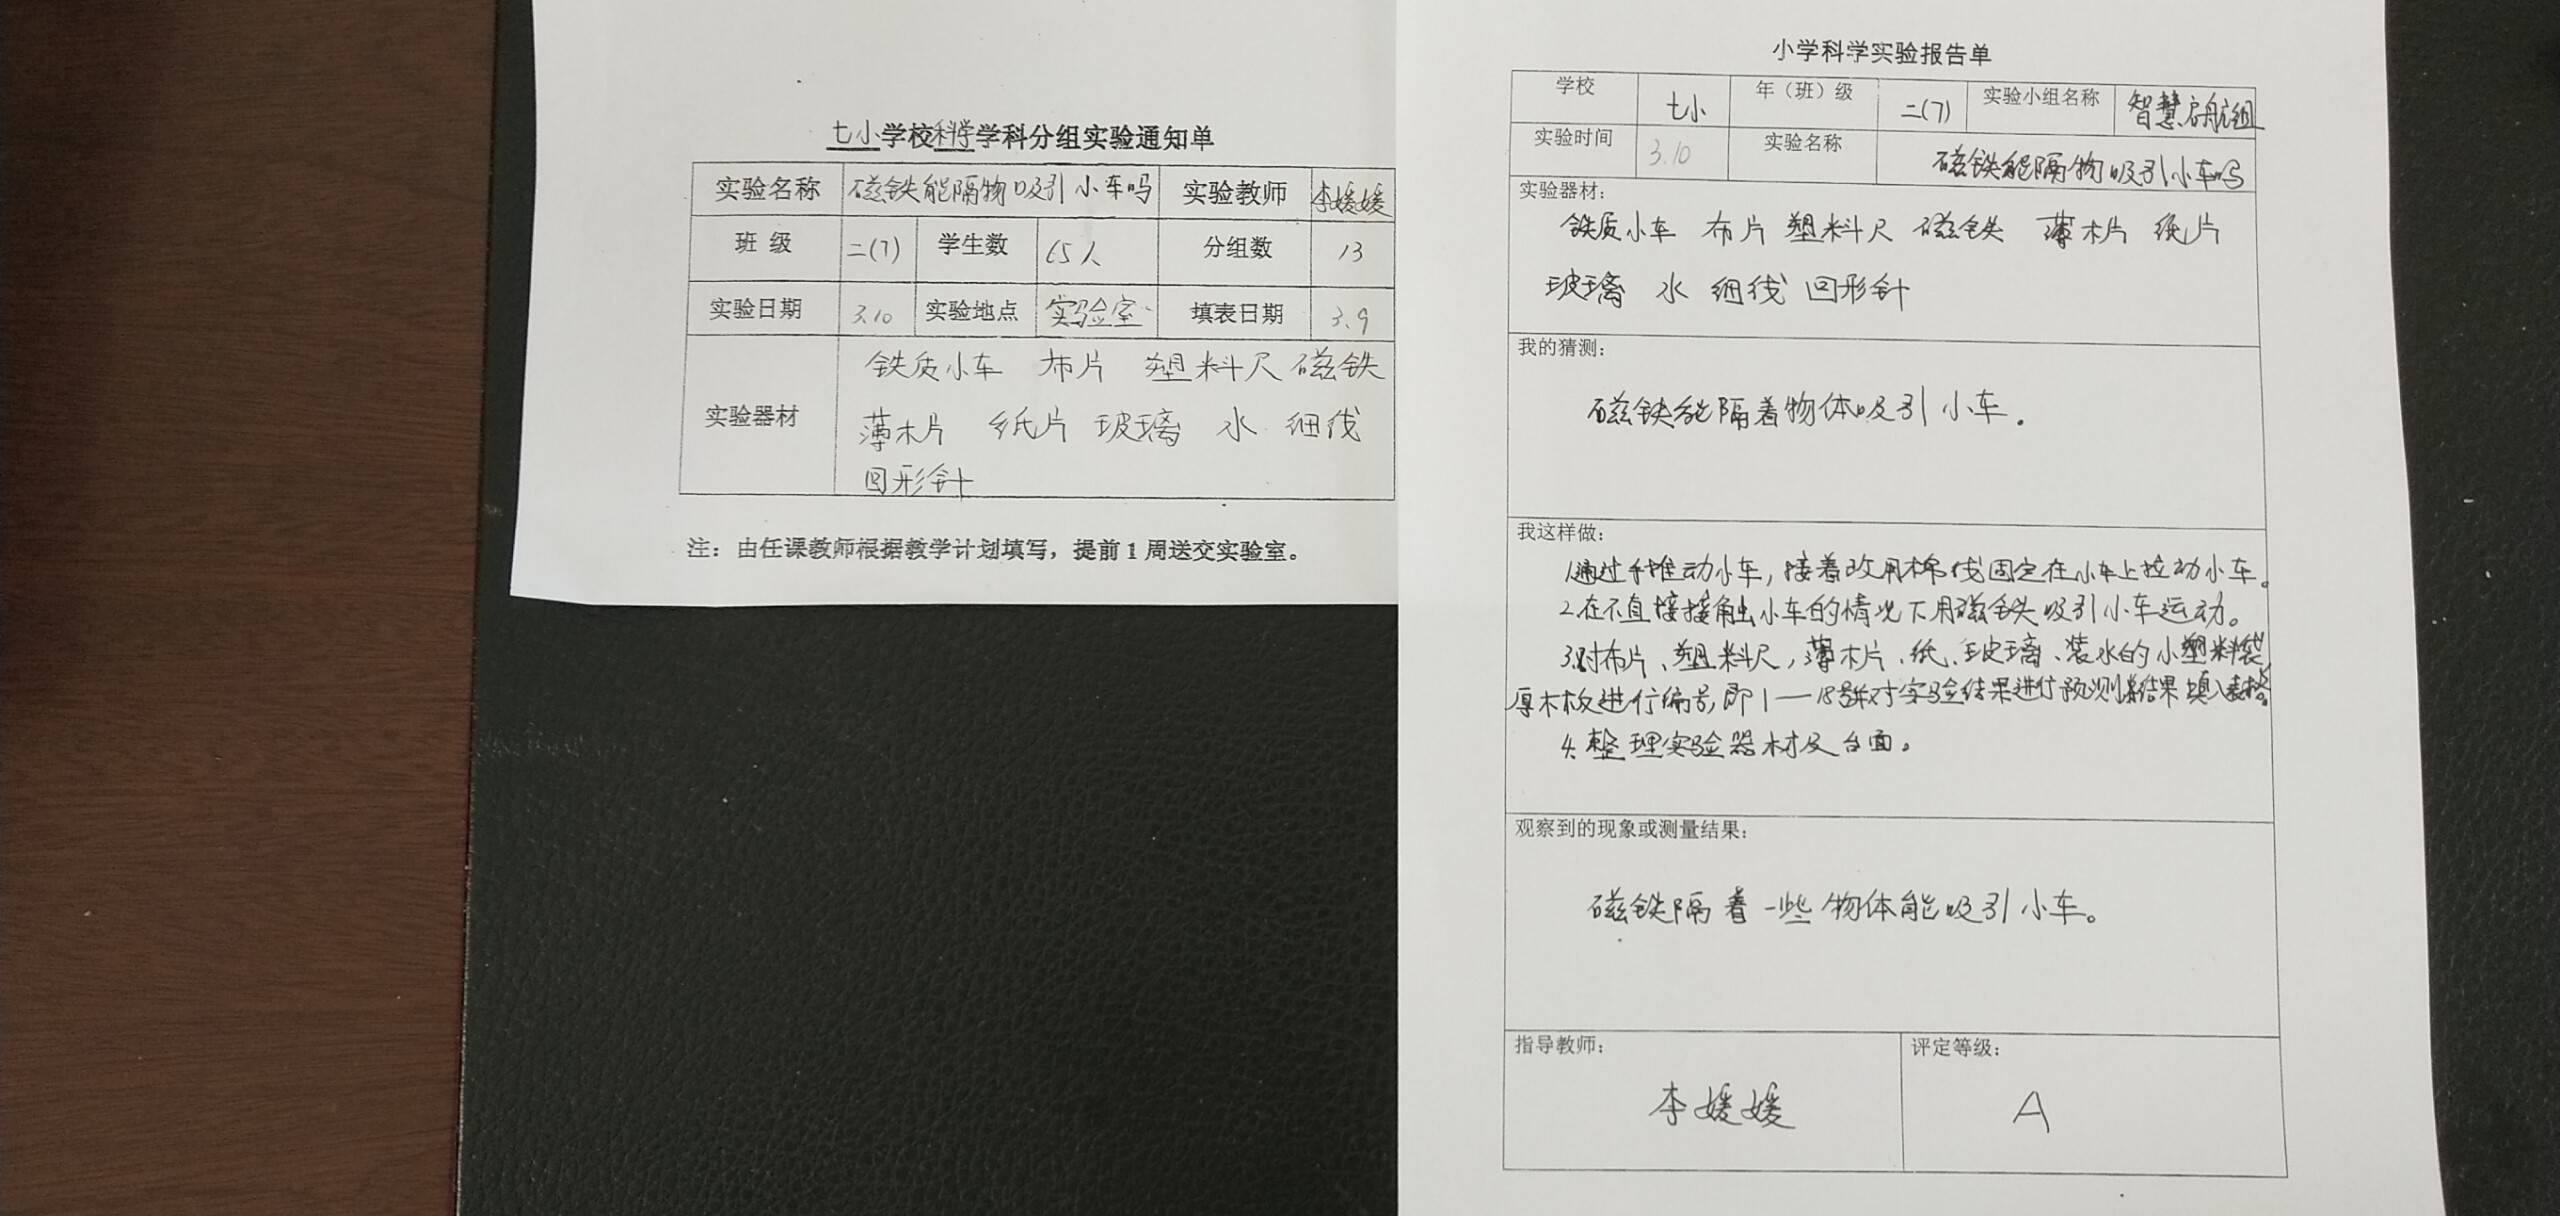 七小学校科学学科分组实验通知单
实验名称 磁铁能隔物吸引小车吗 实验教师 李媛媛
班 级 二(7) 学生数 65人 分组数 13
实验日期 3.10 实验地点 实验室 填表日期 3.9
实验器材
铁质小车 布片 塑料尺 磁铁
薄木片 纸片 玻璃 水 细线
回形针
注：由任课教师根据教学计划填写，提前1周送交实验室。
小学科学实验报告单
学校 七小 年（班）级 二(7) 实验小组名称 智慧启航组
实验时间 3.10 实验名称 磁铁能隔物吸引小车吗
实验器材：
铁质小车 布片 塑料尺 磁铁 薄木片 纸片
玻璃 水 细线 回形针
我的猜测：
磁铁能隔着物体吸引小车.
我这样做：
1.通过手推动小车，接着改用棉线固定在小车上拉动小车。
2.在不直接接触小车的情况下用磁铁吸引小车运动。
3.对布片、塑料尺，薄木片、纸、玻璃、装水的小塑料袋、
厚木板进行编号,即1—8号并对实验结果进行预测将结果填入表格。
4.整理实验器材及台面。
观察到的现象或测量结果：
磁铁隔着一些物体能吸引小车。
指导教师：
李媛媛
评定等级：
A